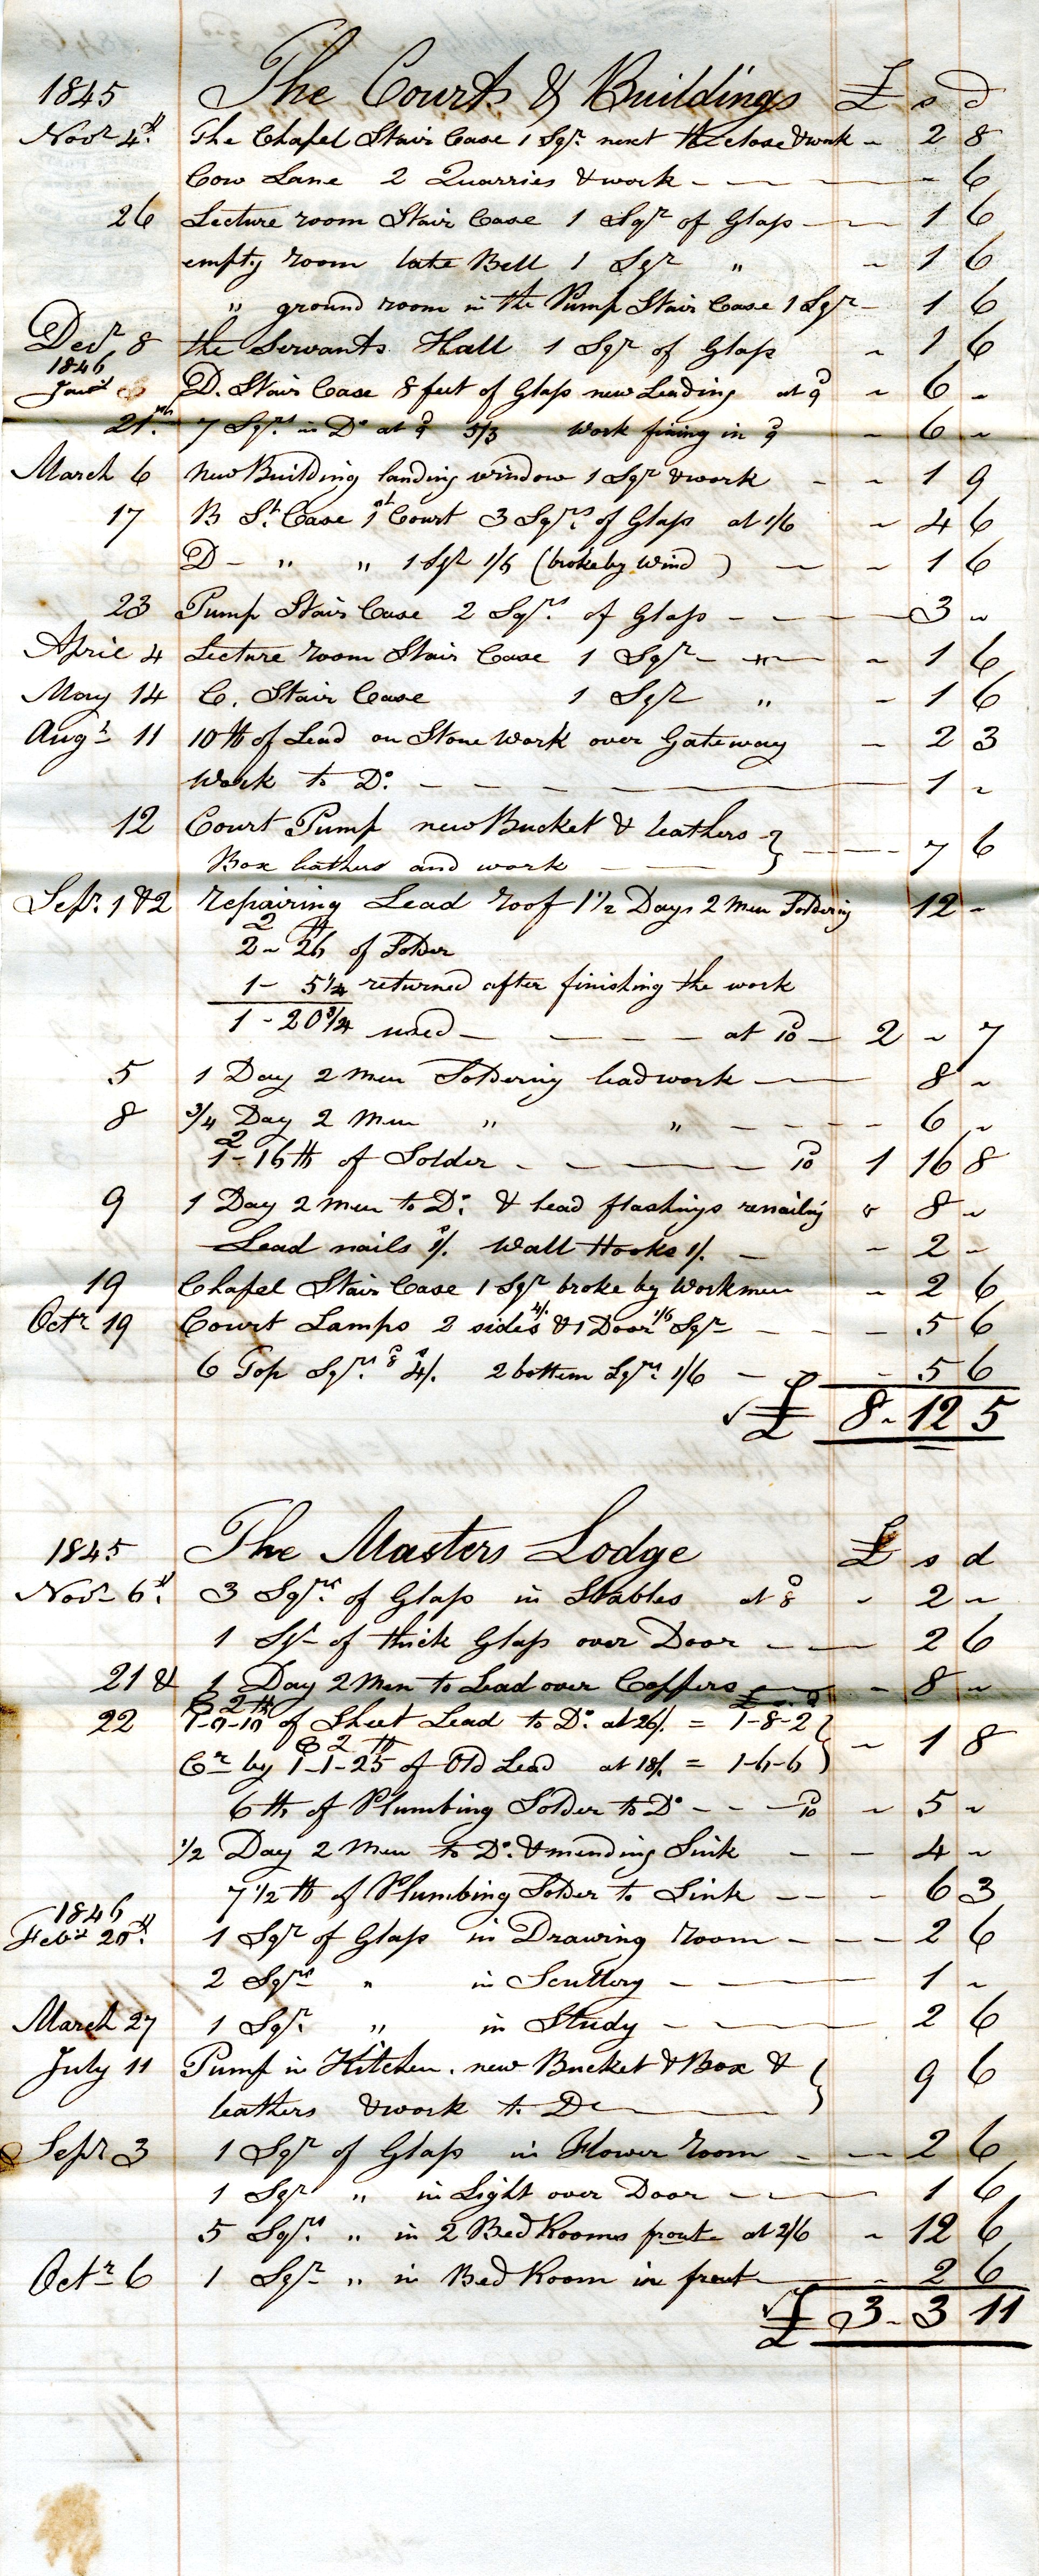 1845 The Courts & Buildings £ s d
Novr 4th The Chapel Stair Case 1 Sqr. next the close & work - 2 8
Cow Lane 2 Quarries & work - 6
26 Lecture room Stair Case 1 Sqr of Glass - 1 6
empty room late Bell 1 Sqr " - 1 6
" ground room in the Pump Stair Case 1 Sqr - 1 6
Decr 8 the Servants Hall 1 Sqr of Glass - 1 6
1846
Jany D. Stair Case 8 feet of Glass new Leading at 9d - 6 -
21st 7 Sqrs in Do at 9d 5/3 Work fixing in 9d - 6 -
March 6 New Building landing window 1 Sqr & work - - 1 9
17 B St. Case 1st Court 3 Sqrs of Glass at 1/6 - 4 6
D - " " 1 Sqr 1/6 (broke by Wind) - - 1 6
23 Pump Stair Case 2 Sqrs. of Glass - 3 -
April 4 Lecture room Stair Case 1 Sqr - " - 1 6
May 14 C. Stair Case 1 Sqr " - 1 6
Augt 11 10 lb of Lead on Stone Work over Gateway - 2 3
Work to Do. - 1 -
12 Court Pump new Bucket & leathers }
Box leathers and work - 7 6
Sepr. 1 & 2 repairing Lead roof 1 1/2 Days 2 Men Soldering 12 -
2 lb
2 - 26 of Solder
1 - 5 1/4 returned after finishing the work
1 - 20 3/4 used - at 10d - 2 - 7
5 1 Day 2 Men Soldering leadwork - 8 -
8 3/4 Day 2 Men " " - 6 -
1 - 16 lb of Solder - 10d 1 16 8
9 1 Day 2 Men to Do. & lead flashings renailing - 8 -
Lead nails 1/. Wall Hooks 1/. - - 2 -
19 Chapel Stair Case 1 Sqr broke by Workmen - 2 6
Octr 19 Court Lamps 2 sides 4/. & 1 Door 1/6 Sqr - 5 6
6 Top Sqrs. 8d 4/. 2 bottom Sqrs. 1/6 - - 5 6
√ £ 8 - 12 5
1845 The Masters Lodge £ s d
Novr 6th. 3 Sqrs. of Glass in Stables at 8d - 2 -
1 Sqr of thick Glass over Door - 2 6
21 & 1 Day 2 Men to Lead over Coppers - 8 -
22 1-0-10 of Sheet Lead to Do. at 26/. = 1-8-2 }
Cr by 1-1-25 of Old Lead at 18/. = 1-6-6 } - 1 8
6 lb. of Plumbing Solder to Do - 10d - 5 -
1/2 Day 2 Men to Do. & mending Sink - - 4 -
7 1/2 lb of Plumbing Solder to Sink - - 6 3
1846
Feby 20th. 1 Sqr of Glass in Drawing room - 2 6
2 Sqrs " in Scullery - 1 -
March 27 1 Sqr. " in Study - 2 6
July 11 Pump in Kitchen. new Bucket & Box & }
leathers & work to Do } 9 6
Sepr 3 1 Sqr of Glass in Flower room - 2 6
1 Sqr " in Light over Door - 1 6
5 Sqrs. " in 2 Bed Rooms front at 2/6 - 12 6
Octr 6 1 Sqr " in Bed Room in front - 2 6
√ £ 3 - 3 11